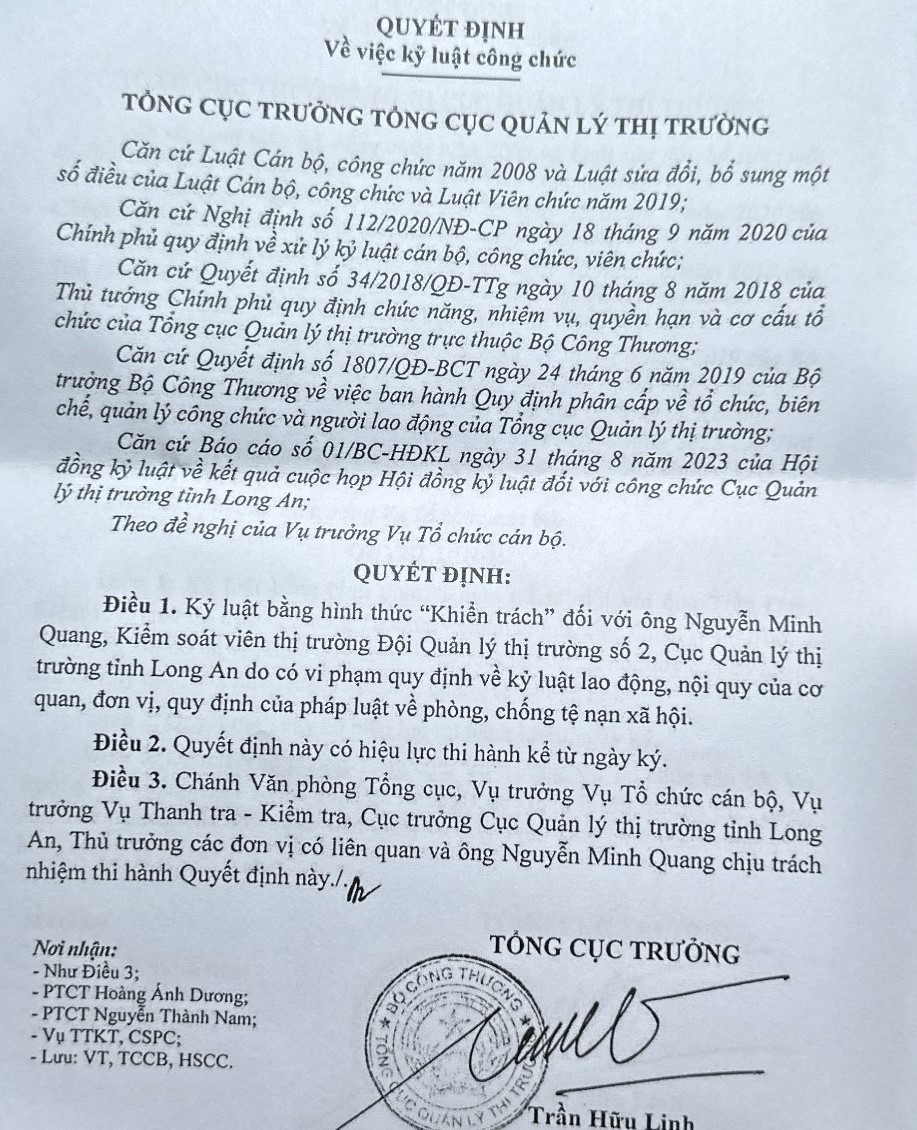 QUYẾT ĐỊNH
Về việc kỷ luật công chức
TỔNG CỤC TRƯỞNG TỔNG CỤC QUẢN LÝ THỊ TRƯỜNG
Căn cứ Luật Cán bộ, công chức năm 2008 và Luật sửa đổi, bổ sung một
số điều của Luật Cán bộ, công chức và Luật Viên chức năm 2019;
Căn cứ Nghị định số 112/2020/NĐ-CP ngày 18 tháng 9 năm 2020 của
Chính phủ quy định về xử lý kỷ luật cán bộ, công chức, viên chức;
Căn cứ Quyết định số 34/2018/QĐ-TTg ngày 10 tháng 8 năm 2018 của
Thủ tướng Chính phủ quy định chức năng, nhiệm vụ, quyền hạn và cơ cấu tổ
chức của Tổng cục Quản lý thị trường trực thuộc Bộ Công Thương;
Căn cứ Quyết định số 1807/QĐ-BCT ngày 24 tháng 6 năm 2019 của Bộ
trưởng Bộ Công Thương về việc ban hành Quy định phân cấp về tổ chức, biên
chế, quản lý công chức và người lao động của Tổng cục Quản lý thị trường;
Căn cứ Báo cáo số 01/BC-HĐKL ngày 31 tháng 8 năm 2023 của Hội
đồng kỷ luật về kết quả cuộc họp Hội đồng kỷ luật đối với công chức Cục Quản
lý thị trường tỉnh Long An;
Theo đề nghị của Vụ trưởng Vụ Tổ chức cán bộ.
QUYẾT ĐỊNH:
Điều 1. Kỷ luật bằng hình thức “Khiển trách” đối với ông Nguyễn Minh
Quang, Kiểm soát viên thị trường Đội Quản lý thị trường số 2, Cục Quản lý thị
trường tỉnh Long An do có vi phạm quy định về kỷ luật lao động, nội quy của cơ
quan, đơn vị, quy định của pháp luật về phòng, chống tệ nạn xã hội.
Điều 2. Quyết định này có hiệu lực thi hành kể từ ngày ký.
Điều 3. Chánh Văn phòng Tổng cục, Vụ trưởng Vụ Tổ chức cán bộ, Vụ
trưởng Vụ Thanh tra - Kiểm tra, Cục trưởng Cục Quản lý thị trường tỉnh Long
An, Thủ trưởng các đơn vị có liên quan và ông Nguyễn Minh Quang chịu trách
nhiệm thi hành Quyết định này./.
Nơi nhận:
- Như Điều 3;
- PTCT Hoàng Ánh Dương;
- PTCT Nguyễn Thành Nam;
- Vụ TTKT, CSPC;
- Lưu: VT, TCCB, HSCC.
TỔNG CỤC TRƯỞNG
BỘ CÔNG THƯƠNG
TỔNG CỤC QUẢN LÝ THỊ TRƯỜNG
Trần Hữu Linh